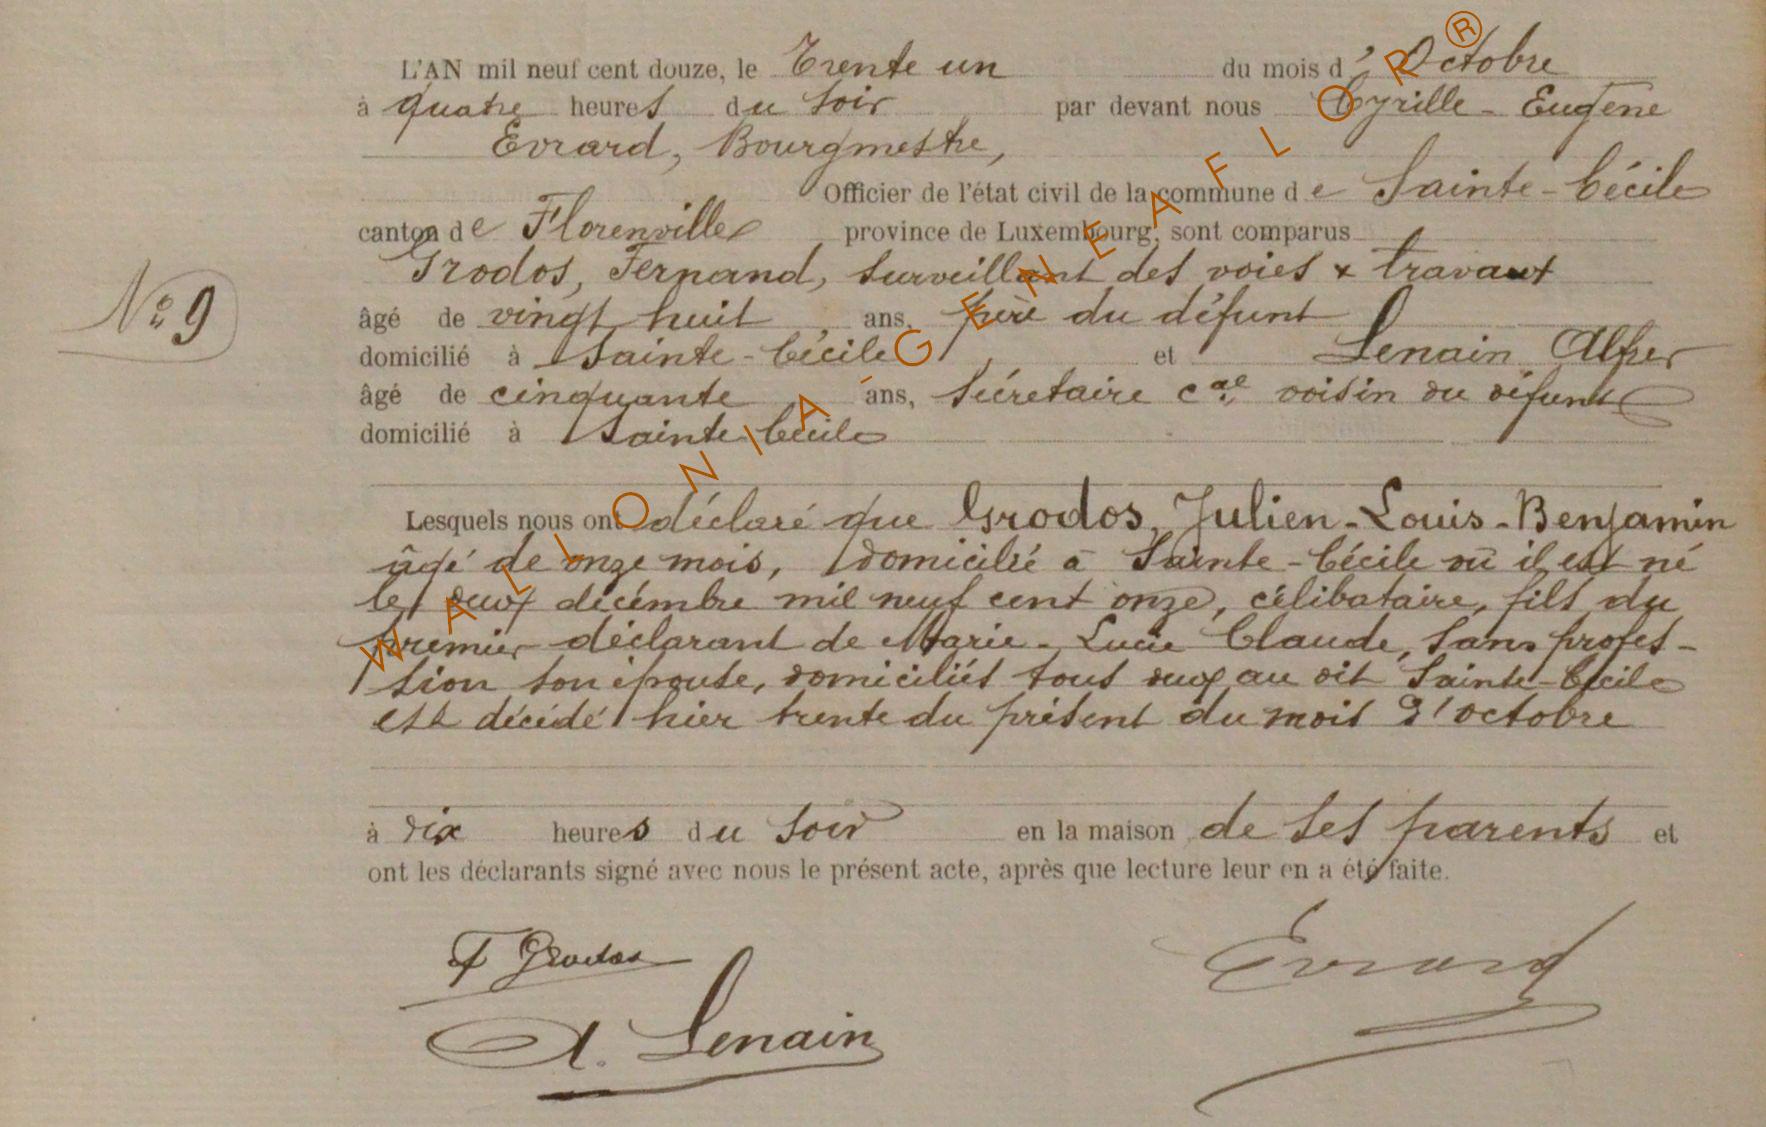 L'AN mil neuf cent douze, le Trente un du mois d'Octobre
à quatre heures du soir par devant nous Cyrille-Eugène
Evrard, Bourgmestre,
Officier de l'état civil de la commune de Sainte-Cécile
canton de Florenville province de Luxembourg, sont comparus
Grodos, Fernand, surveillant des voies & travaux
âgé de vingt huit ans, père du défunt
domicilié à Sainte-Cécile, et Lenain Alfred
âgé de cinquante ans, sécretaire cal voisin du défunt
domicilié à Sainte Cécile
N° 9
Lesquels nous ont déclaré que Grodos, Julien-Louis-Benjamin
âgé de onze mois, domicilié à Sainte-Cécile où il est né
le deux décembre mil neuf cent onze, célibataire, fils du
premier déclarant de Marie-Lucie Claude, sans profes-
sion son épouse, domiciliés tous deux au dit Sainte-Cécile
est décédé hier trente du présent du mois d'octobre
à dix heures du soir en la maison de ses parents et
ont les déclarants signé avec nous le présent acte, après que lecture leur en a été faite.
F Grodos
Evrard
A. Lenain
WALLONIA-GENEAFLOR®